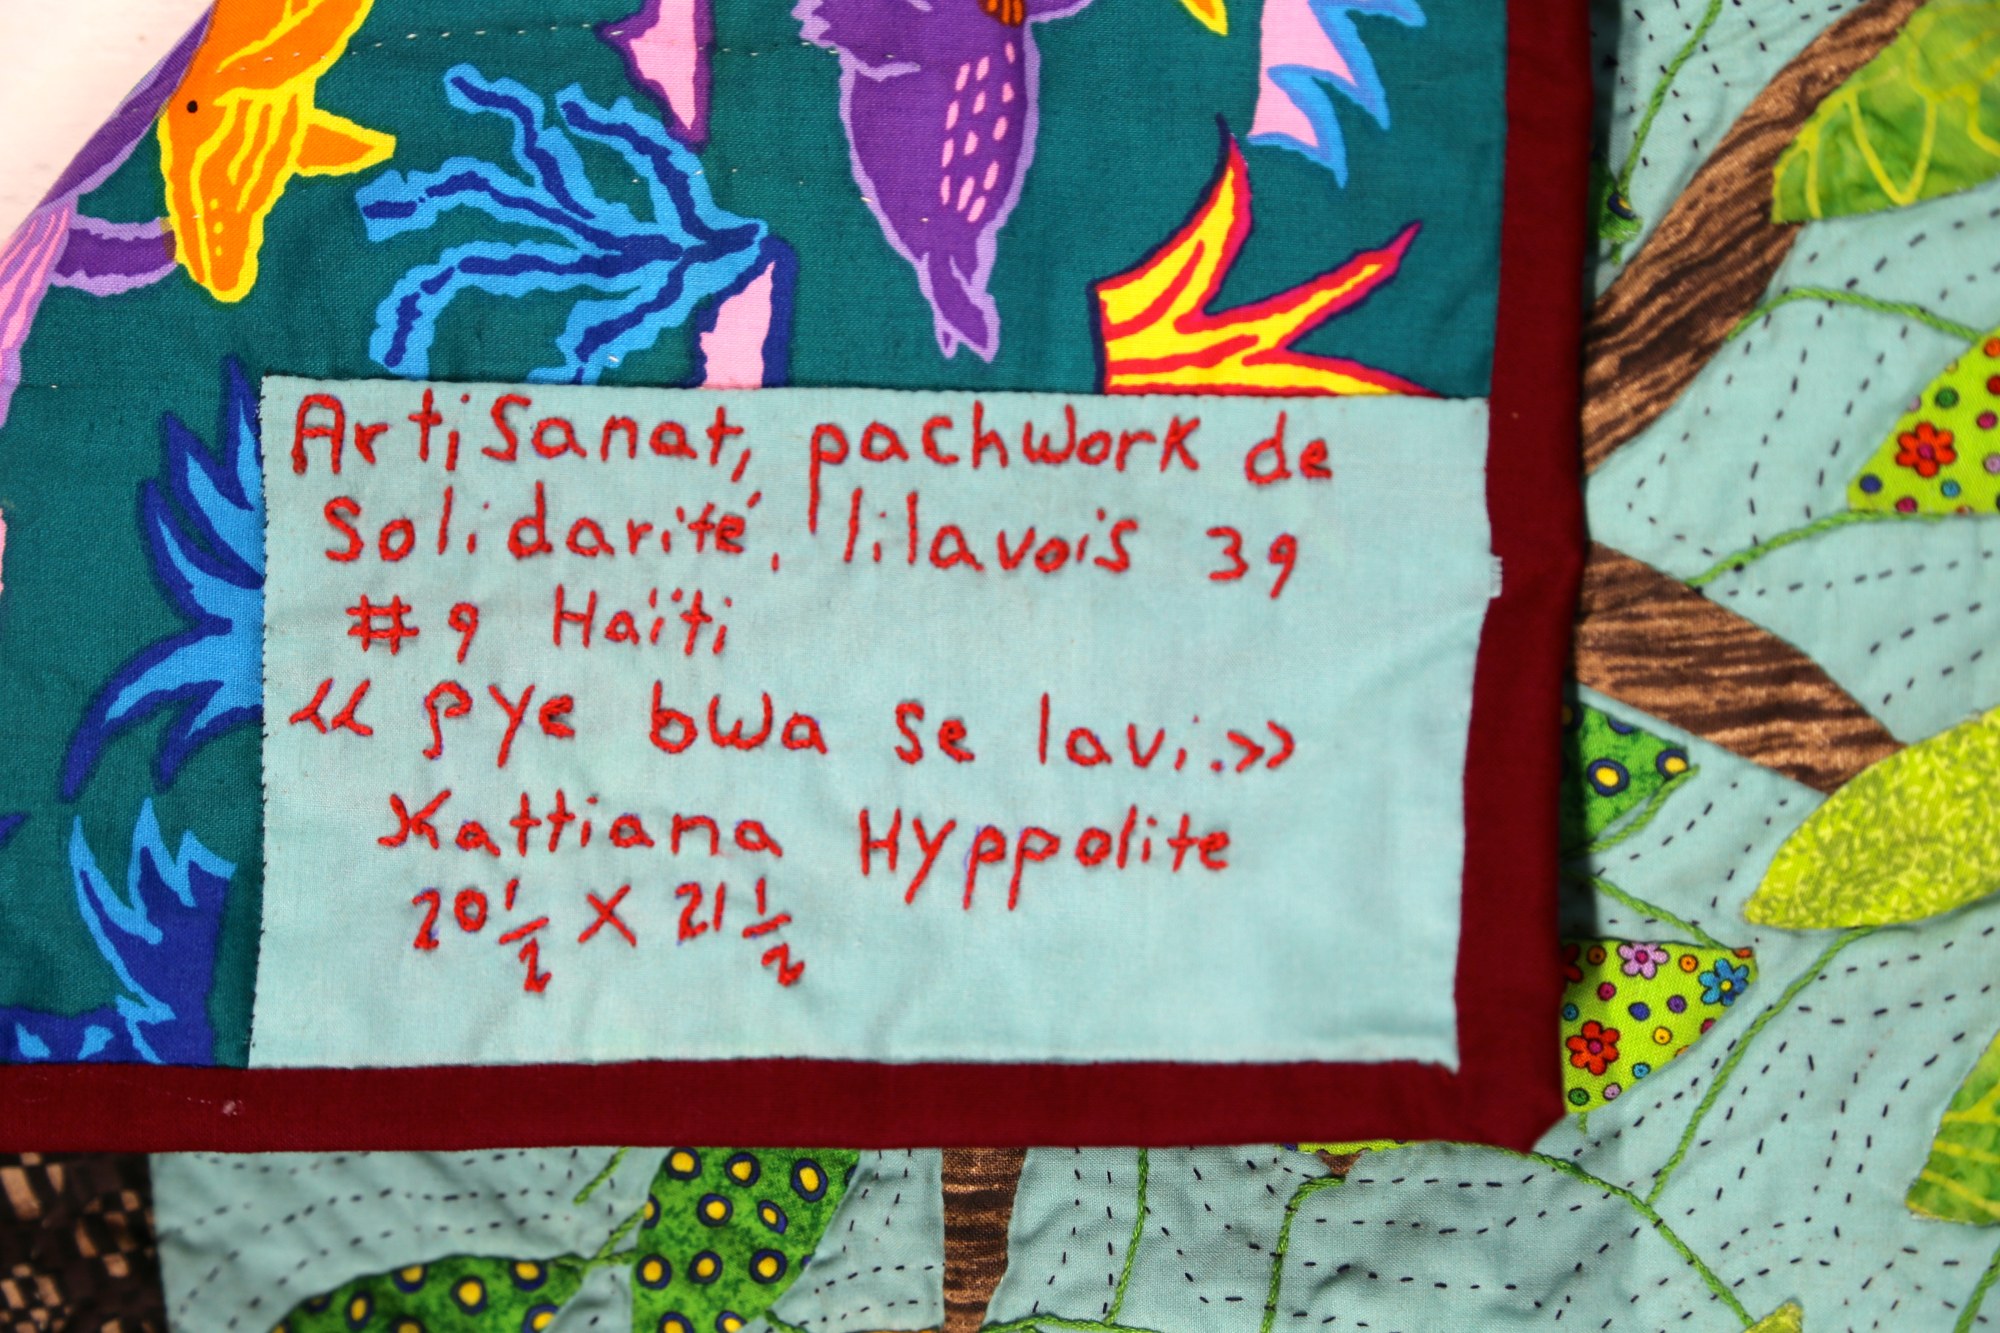 Artisanat, pachwork de
Solidarité, lilavois 39
# 9 Haïti
« pye bwa se lavi.»
Kattiana Hyppolite
20 1/2 X 21 1/2